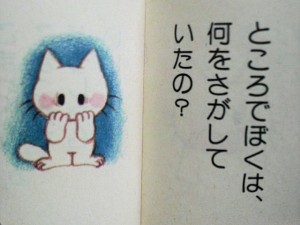 ところでぼくは、
何をさがして
いたの？